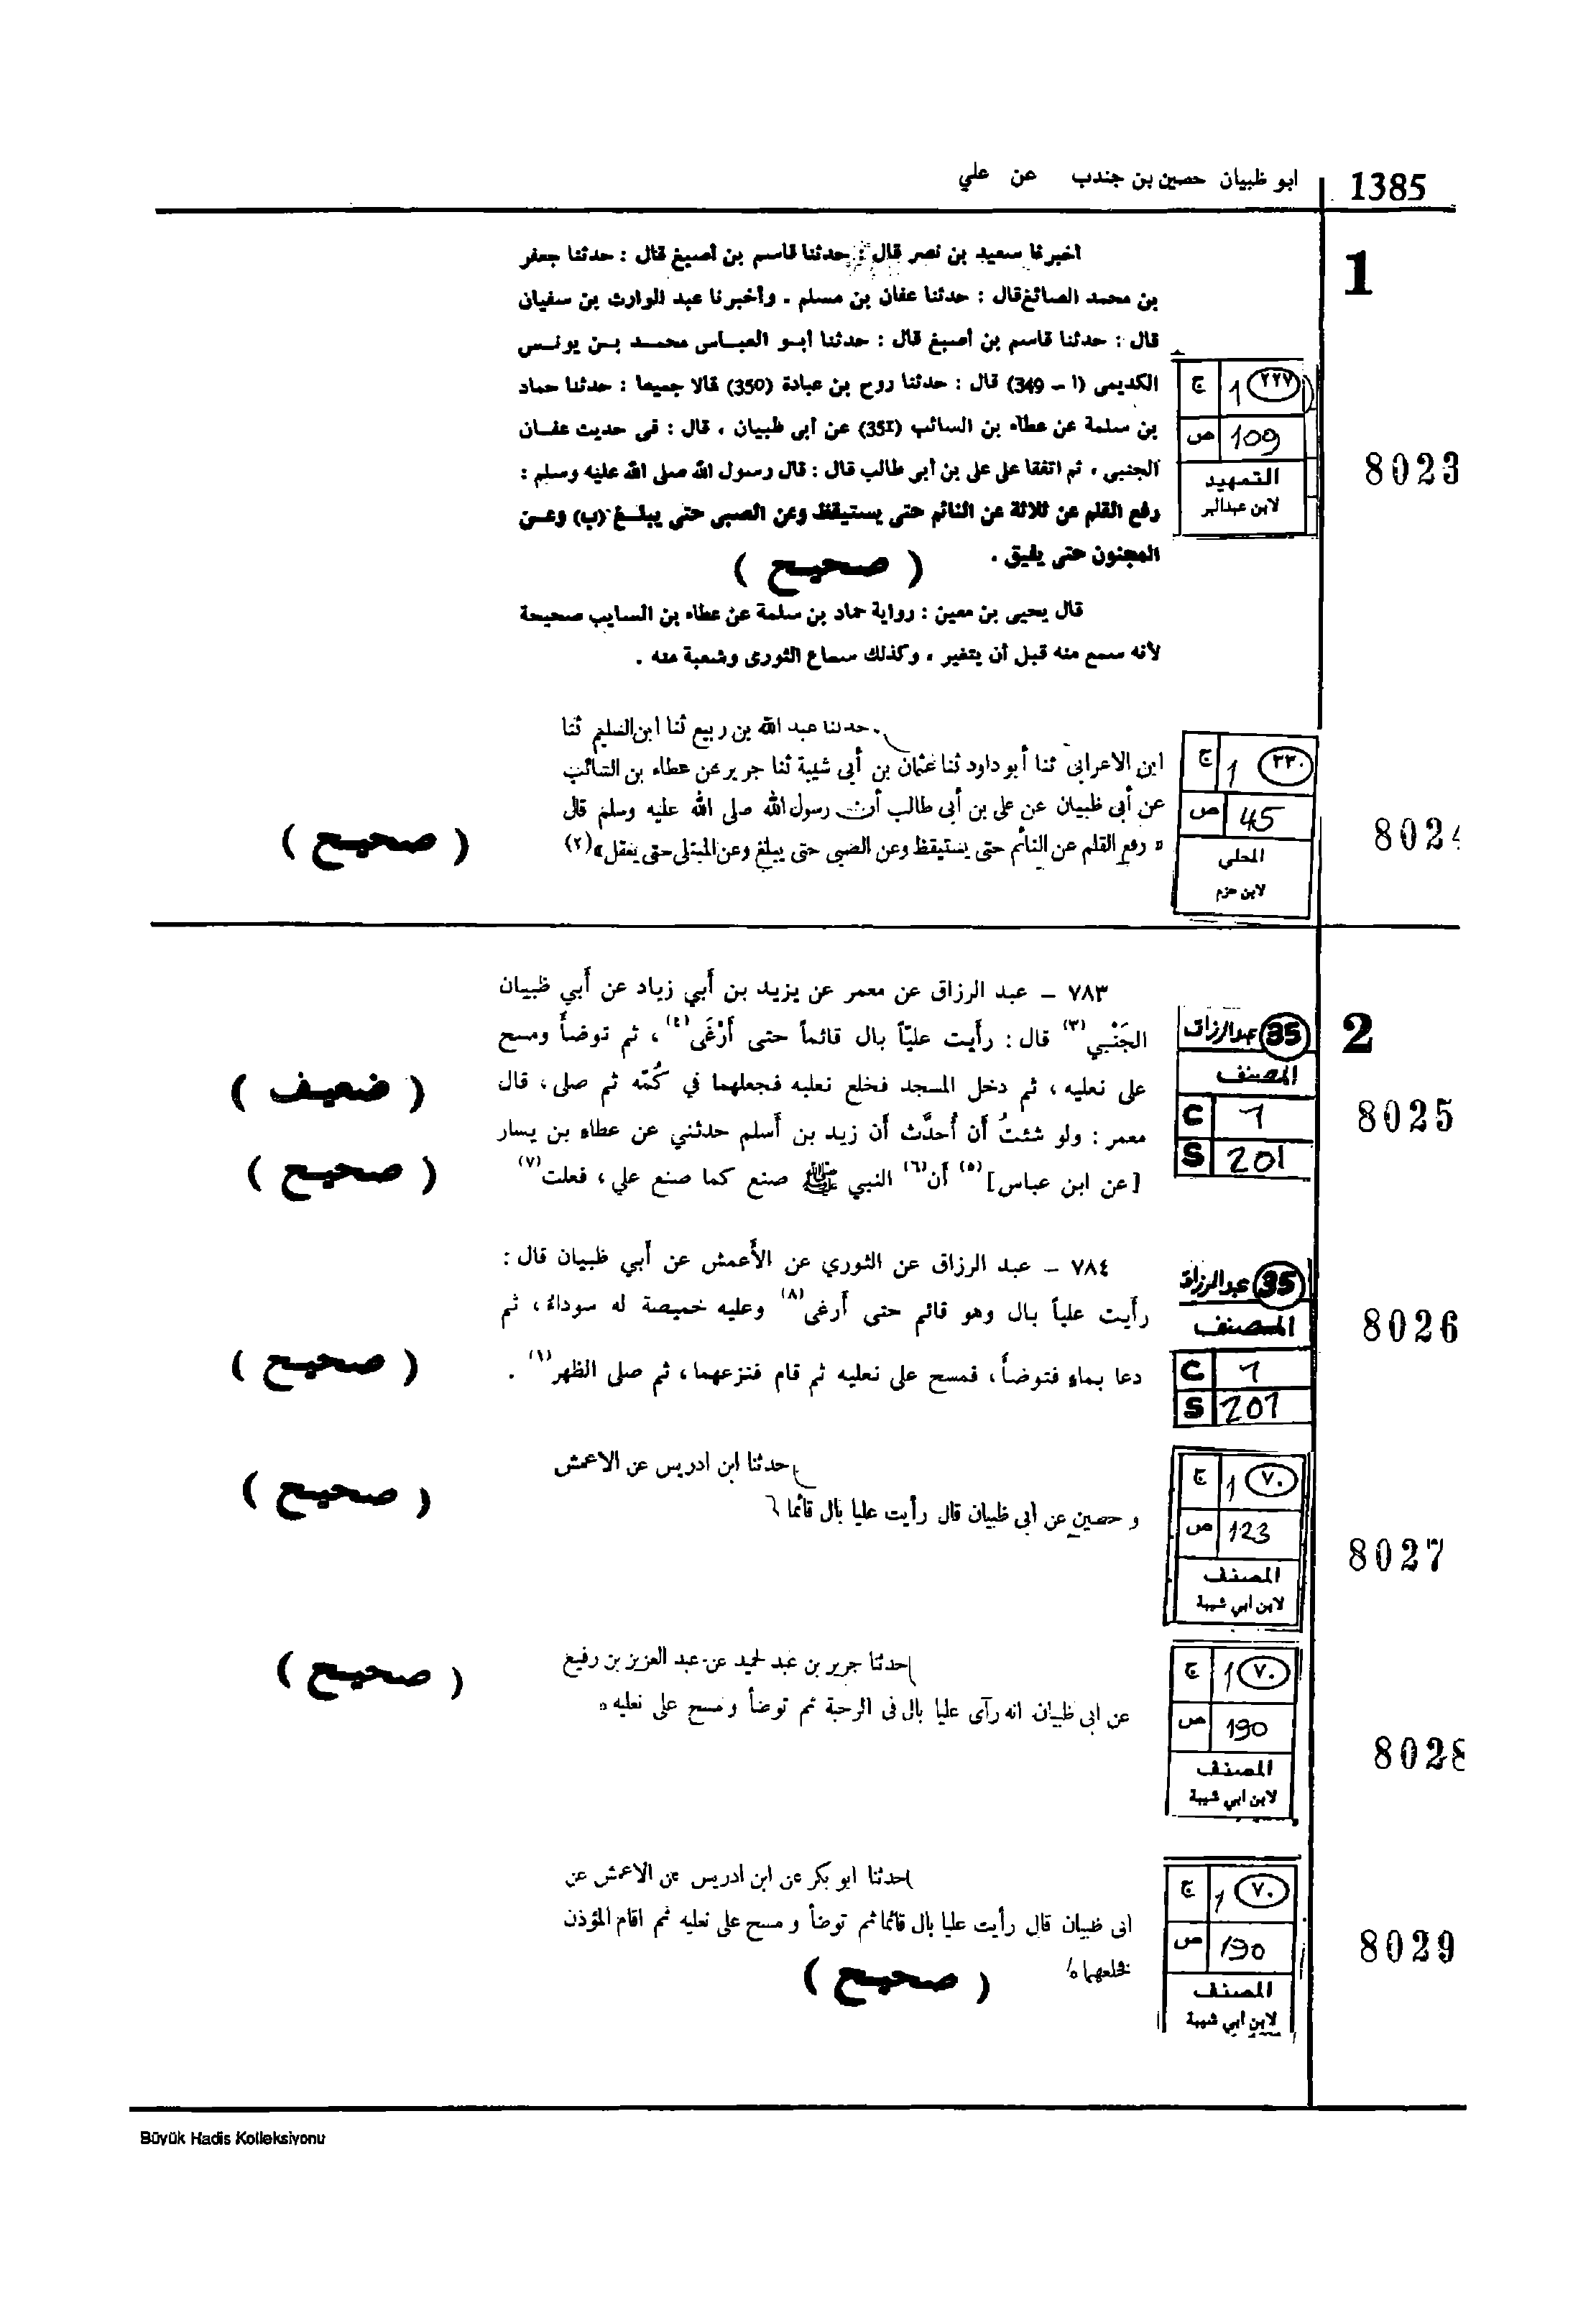 1385
ابو ظبيان حصين بن جندب عن علي
1
اخبرنا سعيد بن نصر قال : حدثنا قاسم بن أصبغ قال : حدثنا جعفر
بن محمد الصائغ قال : حدثنا عفان بن مسلم . وأخبرنا عبد الوارث بن سفيان
قال : حدثنا قاسم بن أصبغ قال : حدثنا أبو العباس محمد بن يونس
الكديمى (ا – 349) قال : حدثنا روح بن عبادة (350) قالا جميعا : حدثنا حماد
بن سلمة عن عطاء بن السائب (351) عن أبى ظبيان ، قال : فى حديث عفان
الجنبى ، ثم اتفقا على على بن أبى طالب قال : قال رسول الله صلى الله عليه وسلم :
رفع القلم عن ثلاثة عن النائم حتى يستيقظ وعن الصبى حتى يبلغ (ب) وعن
المجنون حتى يفيق .
( صحيح )
قال يحيى بن معين : رواية حماد بن سلمة عن عطاء بن السايب صحيحة
لأنه سمع منه قبل أن يتغير ، وكذلك سماع الثورى وشعبة منه .
ج 1 ٢٢٧
ص 109
التمهيد
لابن عبدالبر
8023
حدثنا عبد الله بن ربيع ثنا ابن السليم ثنا
ابن الاعرابى ثنا أبو داود ثنا عثمان بن أبى شيبة ثنا جرير عن عطاء بن السائب
عن أبى ظبيان عن على بن أبى طالب أن رسول الله صلى الله عليه وسلم قال
« رفع القلم عن النائم حتى يستيقظ وعن الصبى حتى يبلغ وعن المبتلى حتى يعقل » (٢)
( صحيح )
ج 1 ٢٣٠
ص 45
المحلي
لابن حزم
8024
2
٧٨٣ – عبد الرزاق عن معمر عن يزيد بن أبي زياد عن أبي ظبيان
الجَنْبي (٣) قال : رأيت عليّاً بال قائماً حتى أَرْغَى (٤) ، ثم توضأ ومسح
على نعليه ، ثم دخل المسجد فخلع نعليه فجعلهما في كُمّه ثم صلى ، قال
معمر : ولو شئتُ أن أُحدَّث أن زيد بن أسلم حدثني عن عطاء بن يسار
[عن ابن عباس] (٥) أن (٦) النبي ﷺ صنع كما صنع علي ، فعلت (٧)
( ضعيف )
( صحيح )
35 عبدالرزاق
المصنف
C 1
S 201
8025
٧٨٤ – عبد الرزاق عن الثوري عن الأعمش عن أبي ظبيان قال :
رأيت علياً بال وهو قائم حتى أرغى (٨) وعليه خميصة له سوداءُ ، ثم
دعا بماءٍ فتوضأ ، فمسح على نعليه ثم قام فنزعهما ، ثم صلى الظهر (١) .
( صحيح )
35 عبدالرزاق
المصنف
C 1
S 201
8026
حدثنا ابن ادريس عن الاعمش
و حصين عن أبى ظبيان قال رأيت عليا بال قائما
( صحيح )
ج 1 ٧٠
ص 123
المصنف
لابن ابي شيبة
8027
حدثنا جرير بن عبد الحميد عن عبد العزيز بن رفيع
عن ابى ظبيان انه رآى عليا بال فى الرحبة ثم توضأ و مسح على نعليه
( صحيح )
ج 1 ٧٠
ص 190
المصنف
لابن ابي شيبة
8028
حدثنا ابو بكر عن ابن ادريس عن الاعمش عن
ابى ظبيان قال رأيت عليا بال قائما ثم توضأ و مسح على نعليه ثم اقام المؤذن
فخلعهما
( صحيح )
ج 1 ٧٠
ص 190
المصنف
لابن ابي شيبة
8029
Büyük Hadis Kolleksiyonu